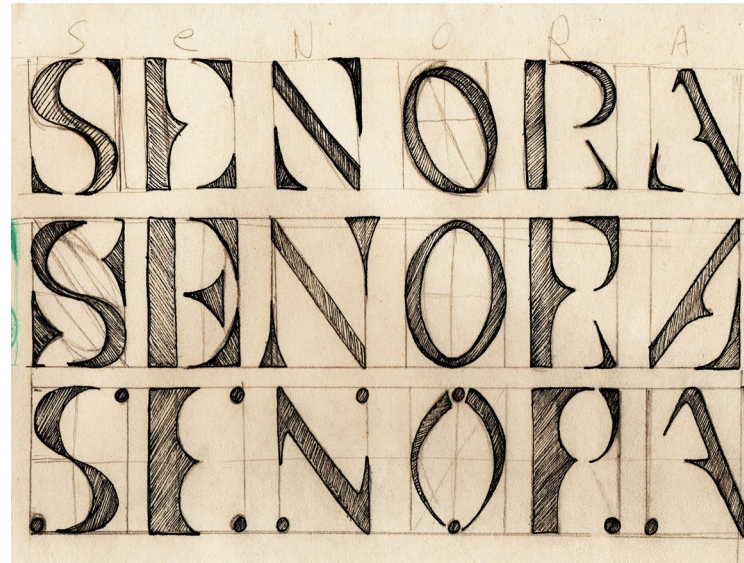 S e N O R A
SENORA
SENORA
SENORA